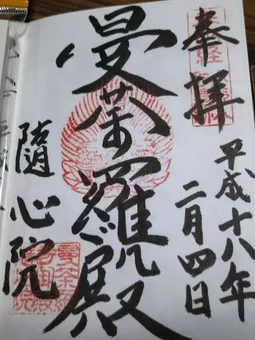 奉拝
平成十八年
二月四日
曼荼羅殿
隨心院